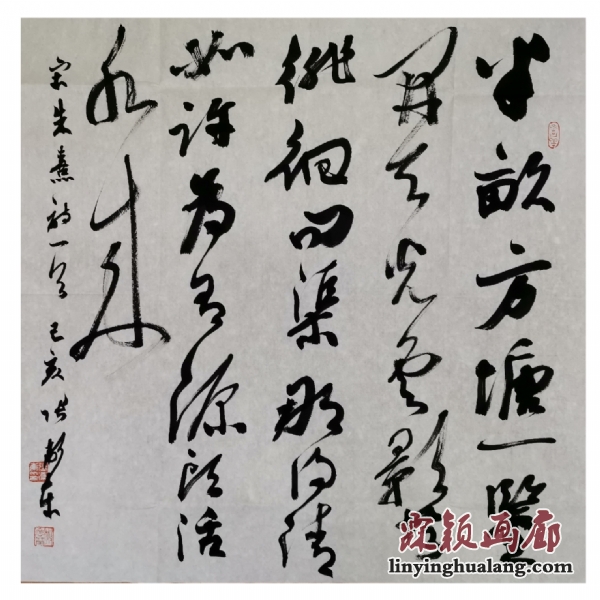 半畝方塘一鑒
開天光雲影共
徘徊问渠那得清
如許为有源頭活
水来
宋朱熹詩一首 己亥 张
颖画廊
linyinghualang.com